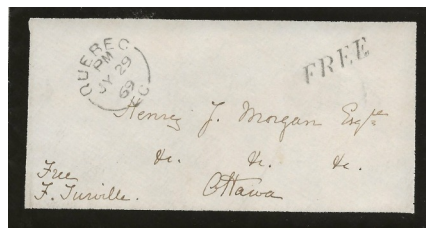 QUEBEC
PM
JY 29
69
FREE
Henry J. Morgan Esqre
&c. &c. &c.
Ottawa
Free
F. Turville.